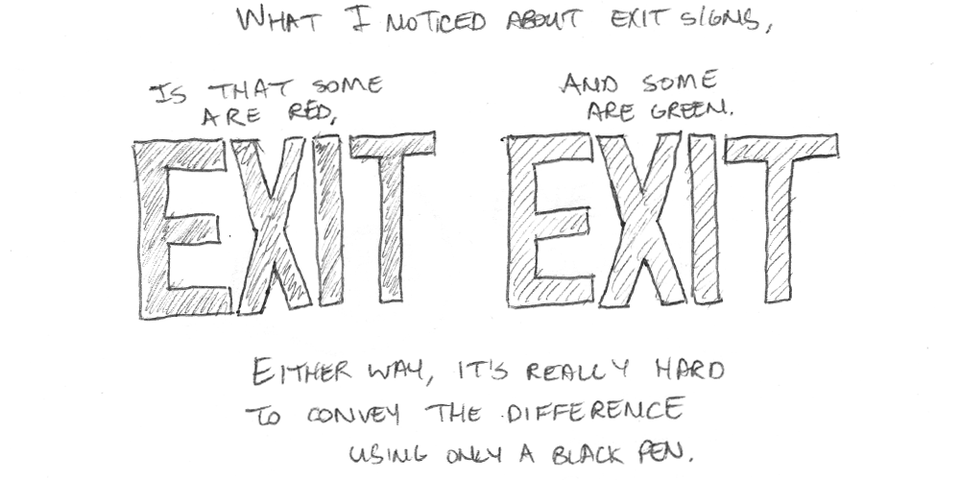 WHAT I NOTICED ABOUT EXIT SIGNS,
IS THAT SOME
ARE RED,
AND SOME
ARE GREEN.
EXIT EXIT
EITHER WAY, IT'S REALLY HARD
TO CONVEY THE DIFFERENCE
USING ONLY A BLACK PEN.